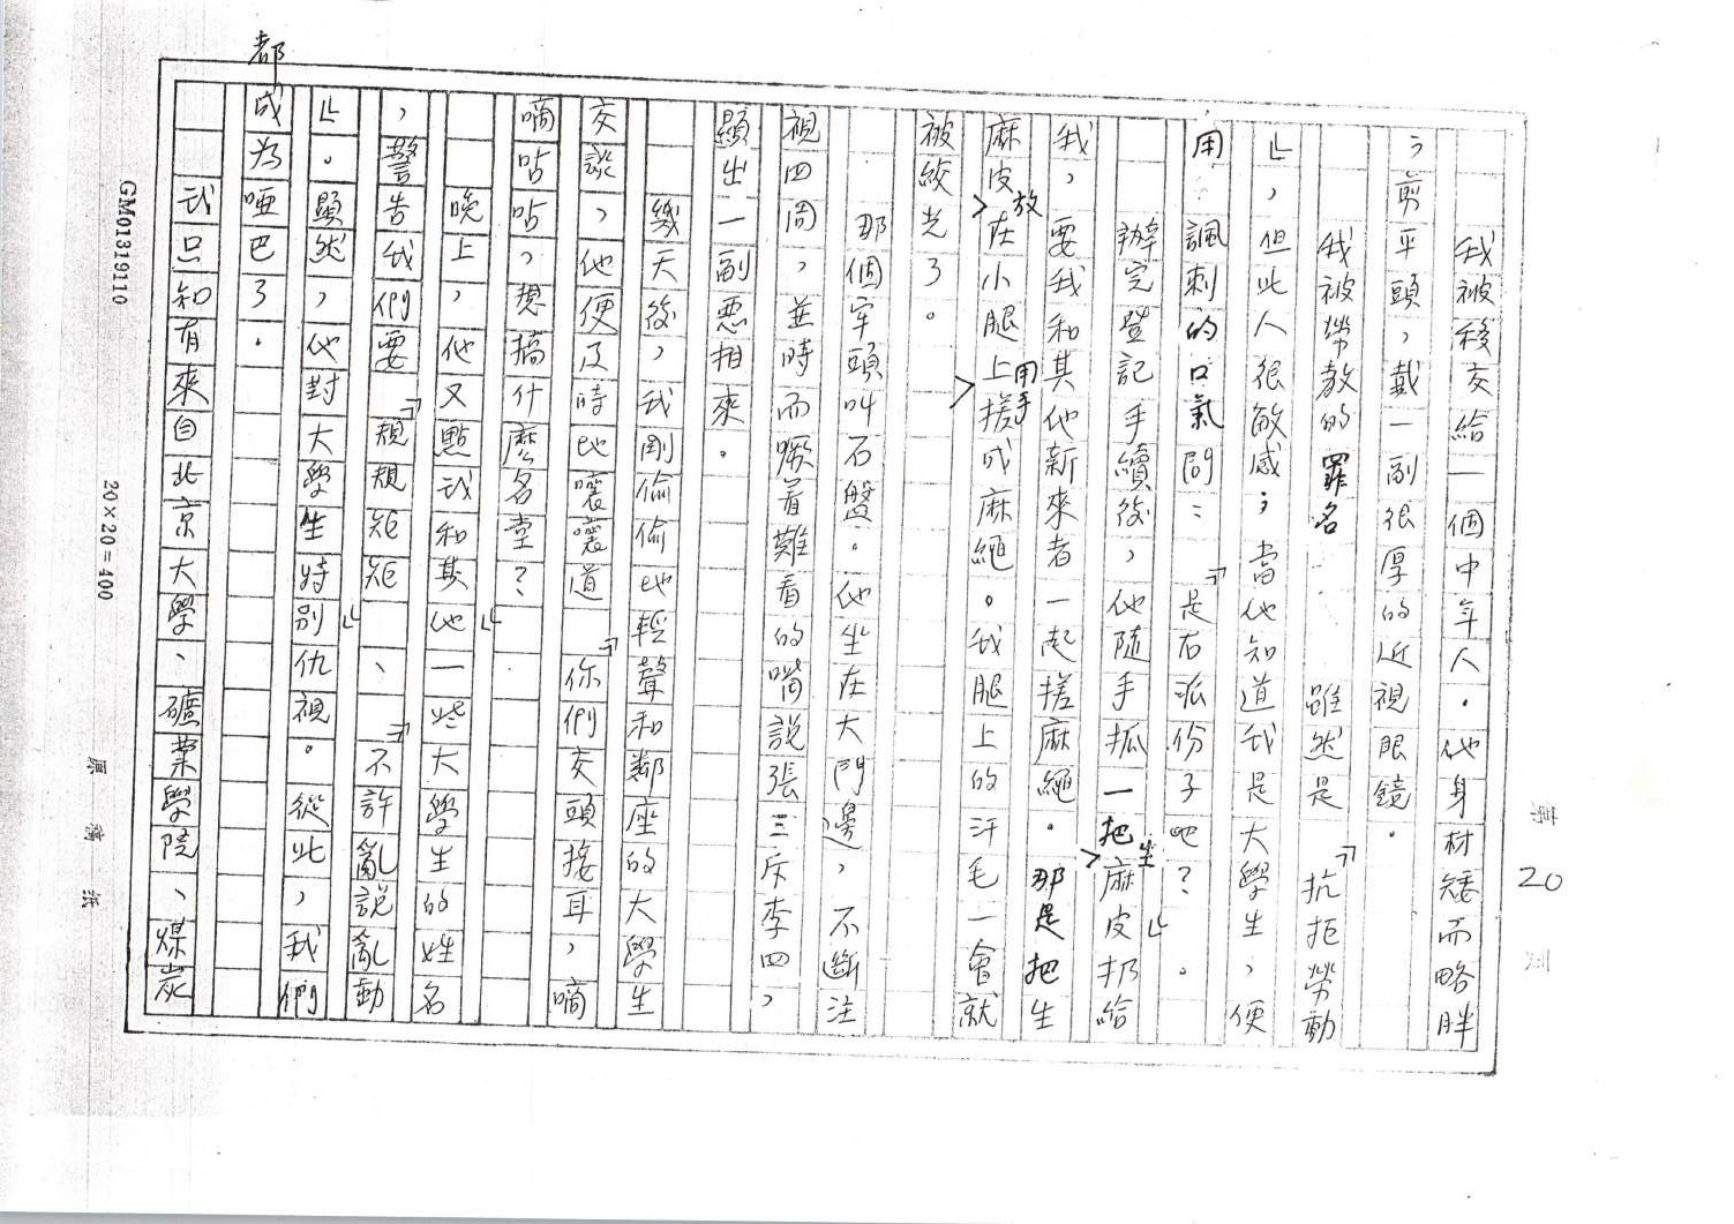 第 20 頁
我被移交給一個中年人。他身材矮而略胖
，剪平頭，戴一副很厚的近視眼鏡。
我被勞教的罪名 雖然是「抗拒勞動
」，但此人很敏感；當他知道我是大學生，便
用諷刺的口氣問：「是右派份子吧？」。
辦完登記手續後，他隨手抓一把生麻皮扔給
我，要我和其他新來者一起搓麻繩。那是把生
麻皮放在小腿上用手搓成麻繩。我腿上的汗毛一會就
被絞光了。
那個牢頭叫石盤。他坐在大門邊，不斷注
視四周，並時而噘着難看的嘴說張三斥李四，
顯出一副惡相來。
幾天後，我剛偷偷地輕聲和鄰座的大學生
交談，他便及時地嚷嚷道「你們交頭接耳，嘀
嘀咕咕，想搞什麼名堂？」
晚上，他又點我和其他一些大學生的姓名
，警告我們要「規規矩矩」、「不許亂說亂動
」。顯然，他對大學生特別仇視。從此，我們
都成為啞巴了。
我只知有來自北京大學、礦業學院、煤炭
GM01319110
20×20=400
原稿紙